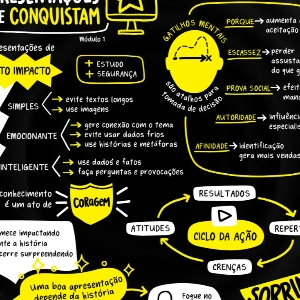 E CONQUISTAM
Módulo 1
esentações de
TO IMPACTO
+ ESTUDO
+ SEGURANÇA
SIMPLES
evite textos longos
use imagens
EMOCIONANTE
gere conexão com o tema
evite usar dados frios
use histórias e metáforas
INTELIGENTE
use dados e fatos
faça perguntas e provocações
conhecimento
é um ato de
CORAGEM
mece impactando
nte a história
cerre surpreendendo
Uma boa apresentação
depende da história
GATILHOS MENTAIS
são atalhos para
tomada de decisão
PORQUE
aumenta
aceitação
ESCASSEZ
perder
assusta
do que g
PROVA SOCIAL
efeit
mana
AUTORIDADE
influênci
especialis
AFINIDADE
identificação
gera mais vendas
RESULTADOS
ATITUDES
CICLO DA AÇÃO
REPERT
CRENÇAS
Fogue no